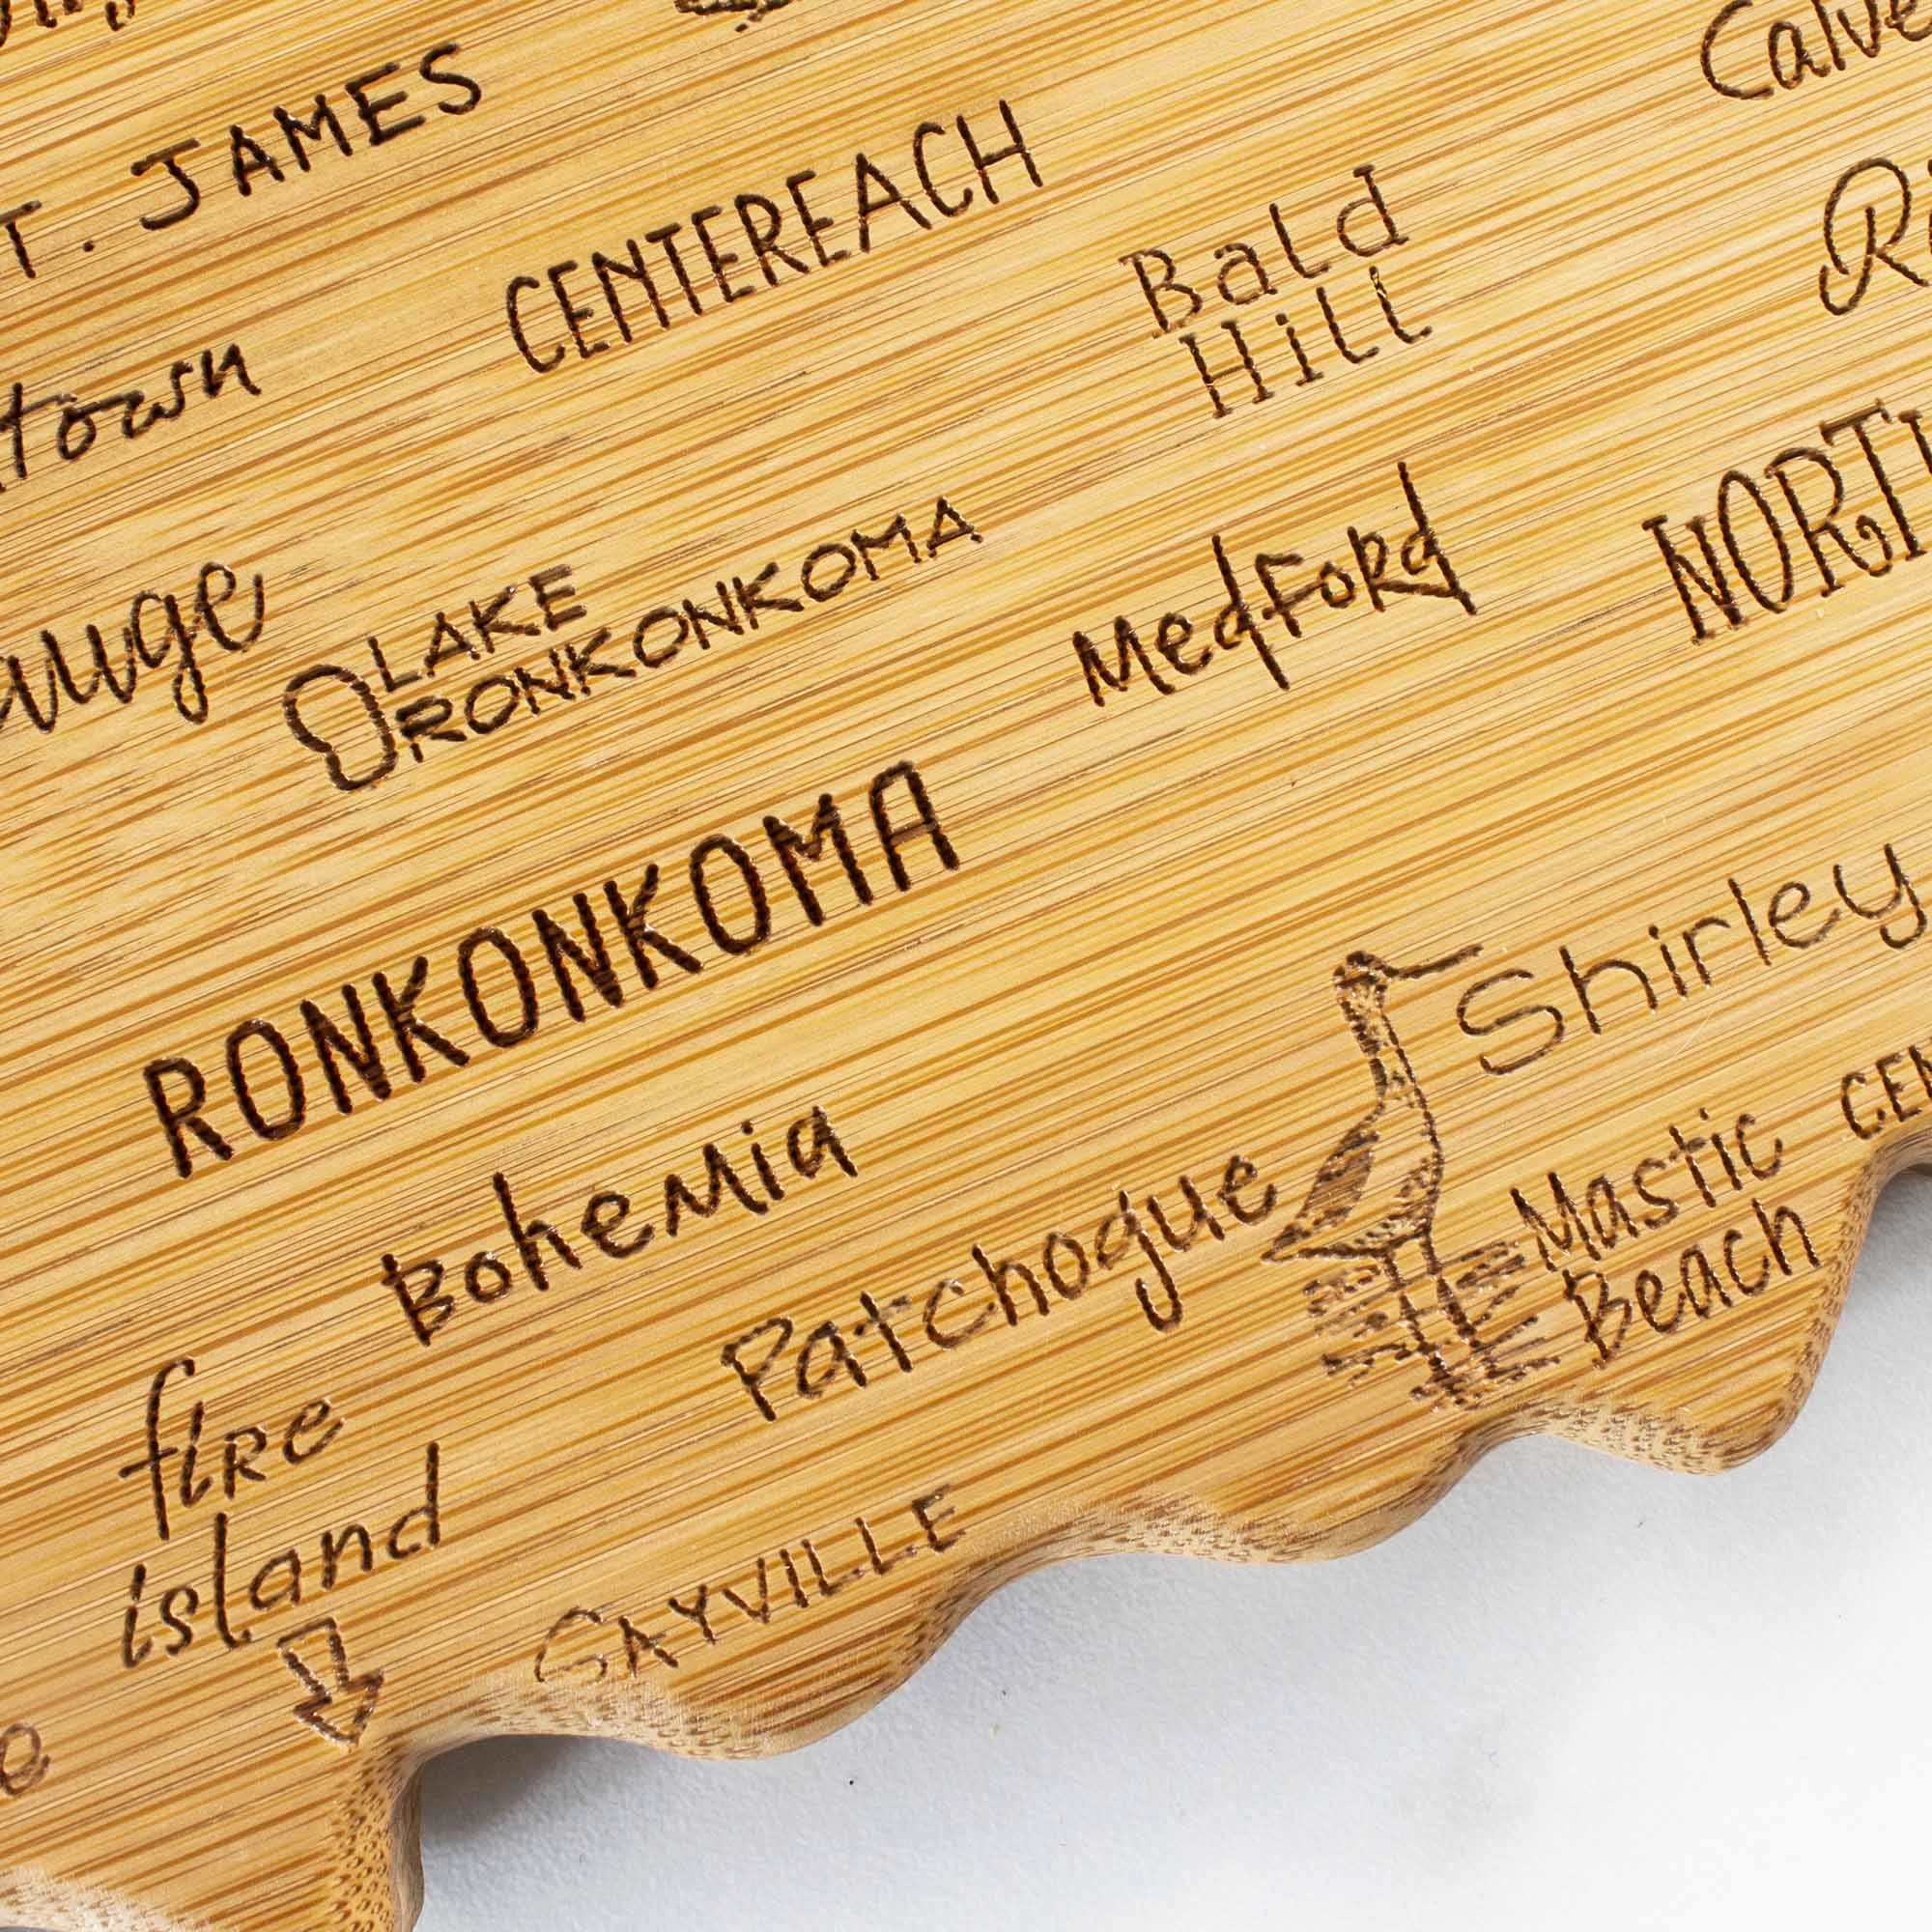 T. JAMES
Calve
CENTEREACH
Bald
Hill
town
LAKE
RONKONKOMA
Medford
NORT
auge
RONKONKOMA
Shirley
Bohemia
Patchogue
Mastic
Beach
CEN
fire
island
GAYVILLE